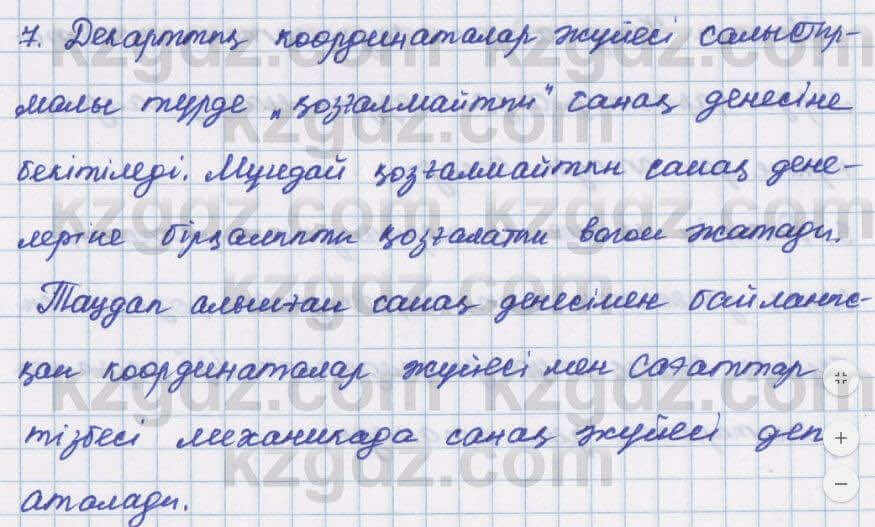 7. Декарттың координаталар жүйесі салыстыр-
малы түрде „қозғалмайтын" санақ денесіне
бекітіледі. Мұндай қозғалмайтын санақ дене-
леріне бірқалыпты қозғалатын вагон жатады.
Таңдап алынған санақ денесімен байланыс-
қан координаталар жүйесі мен сағаттар
тізбесі механикада санақ жүйесі деп
аталады.